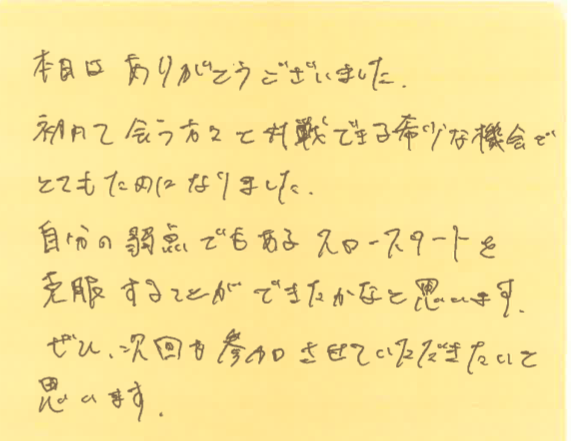 本日は ありがとうございました.
初めて会う方々と対戦できる希少な機会で
とてもためになりました.
自分の弱点でもあるスロースタートを
克服することができたかなと思います.
ぜひ、次回も参加させていただきたいと
思います.